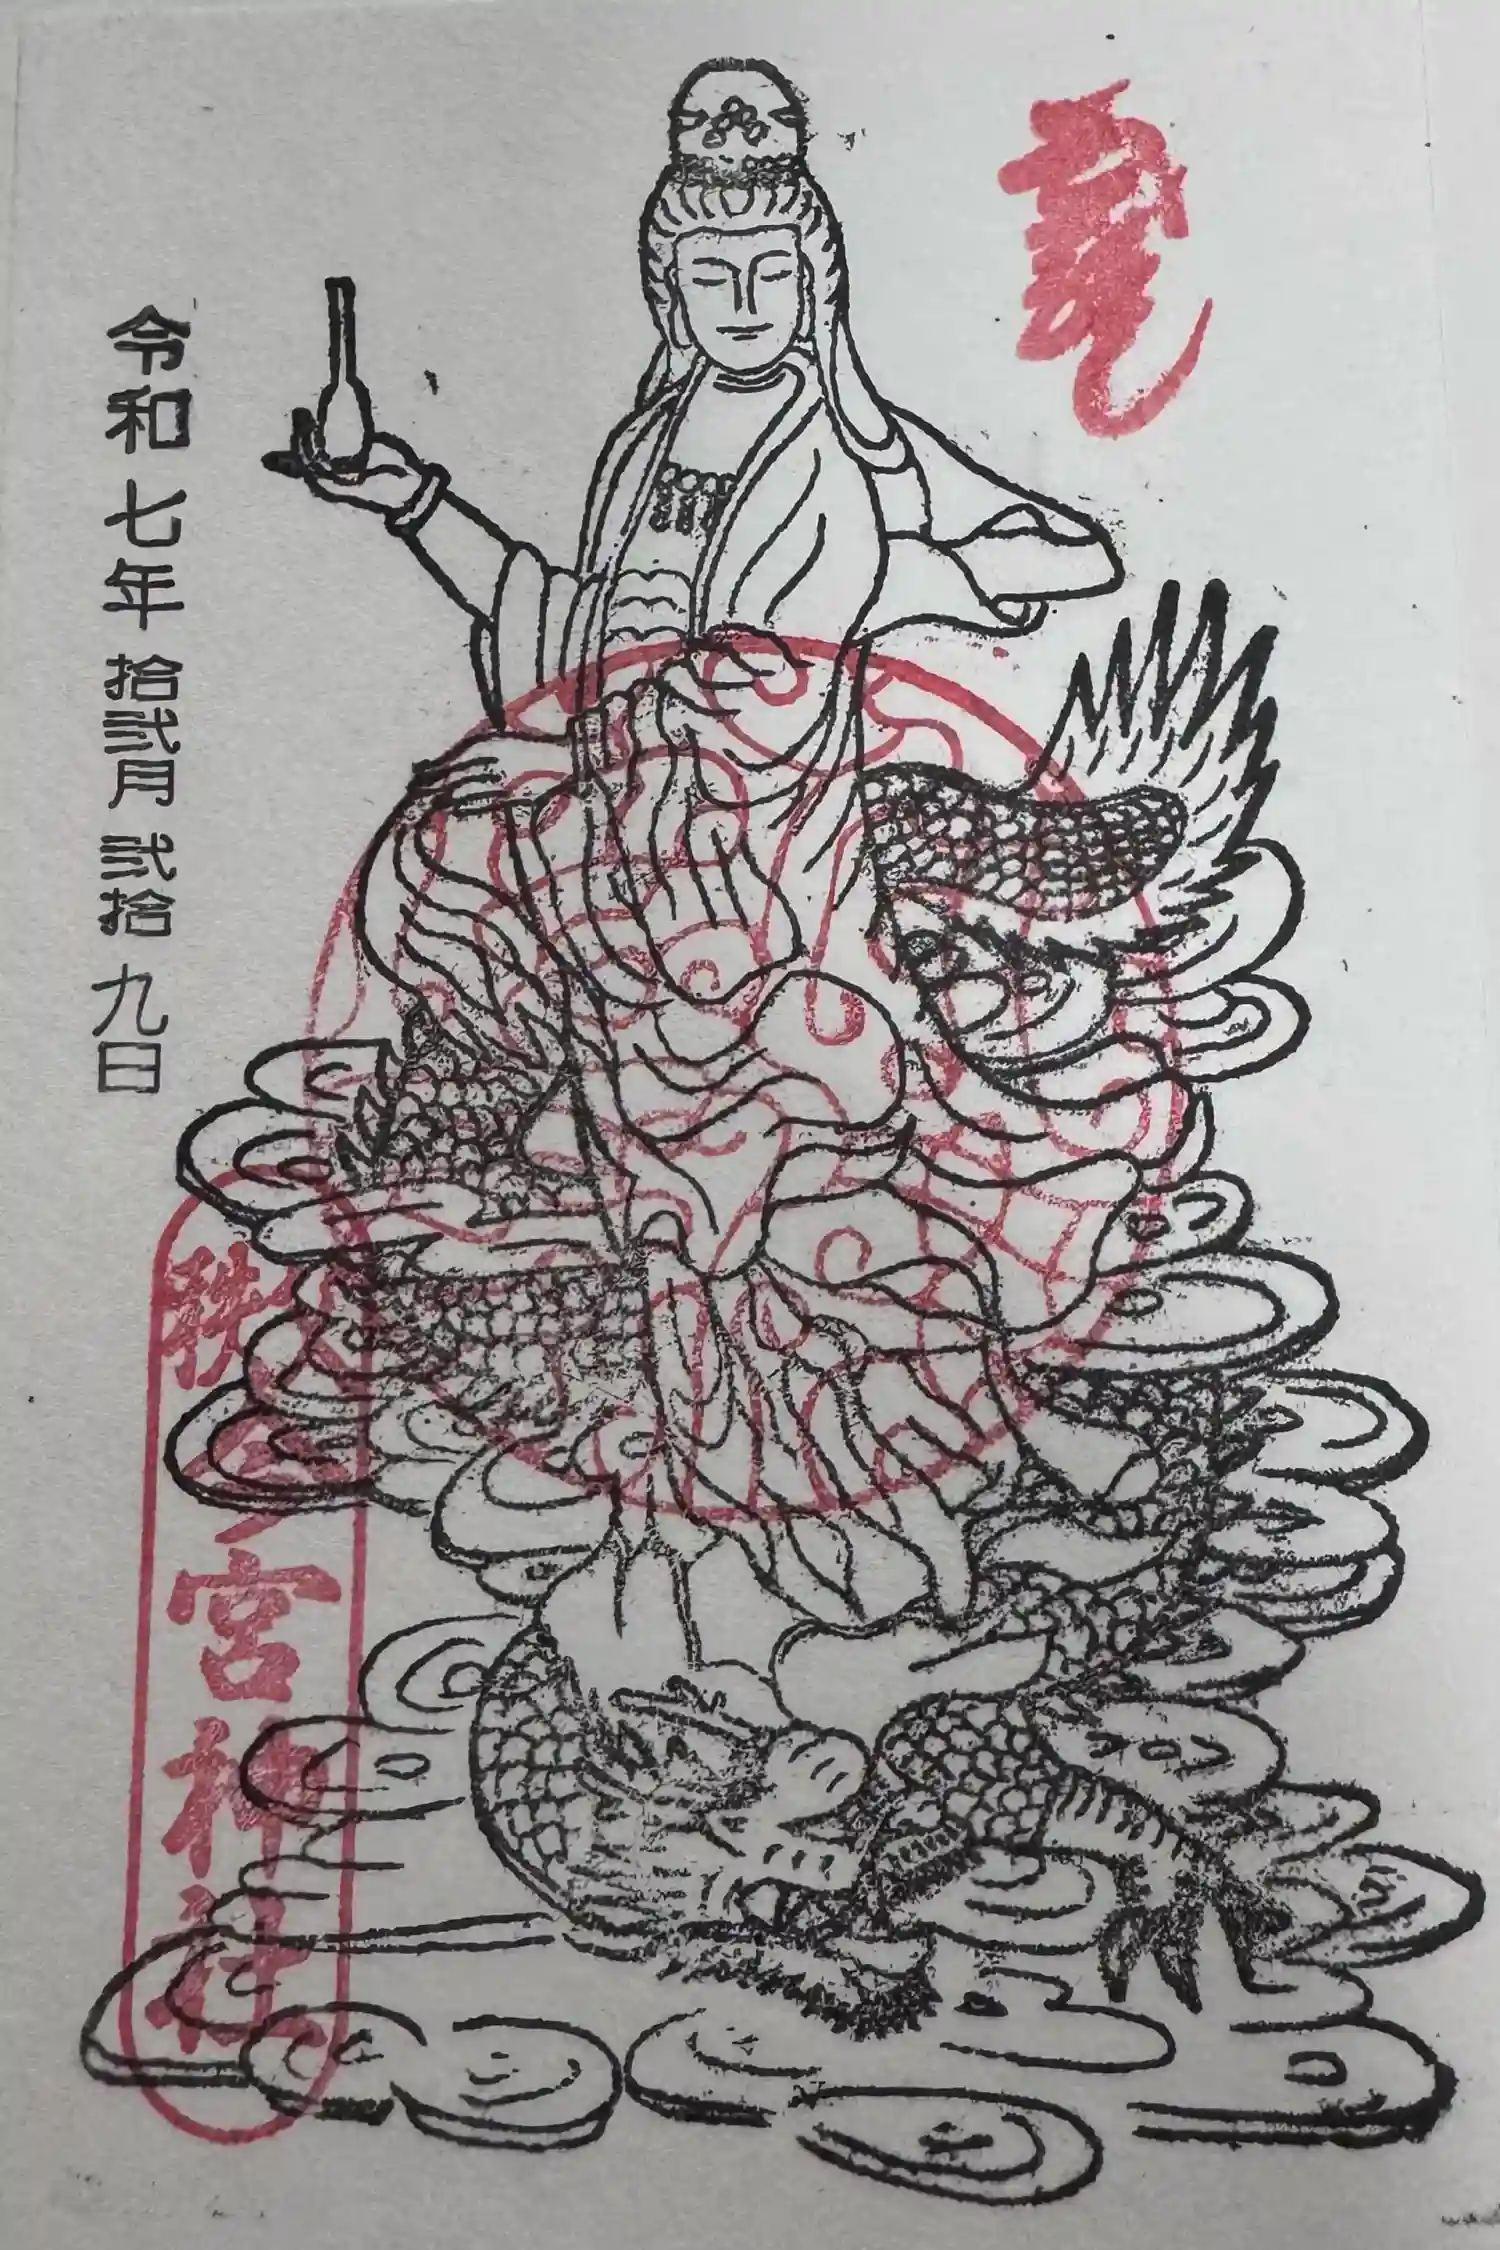 龍
令和七年拾弐月弐拾九日
秩父今宮神社